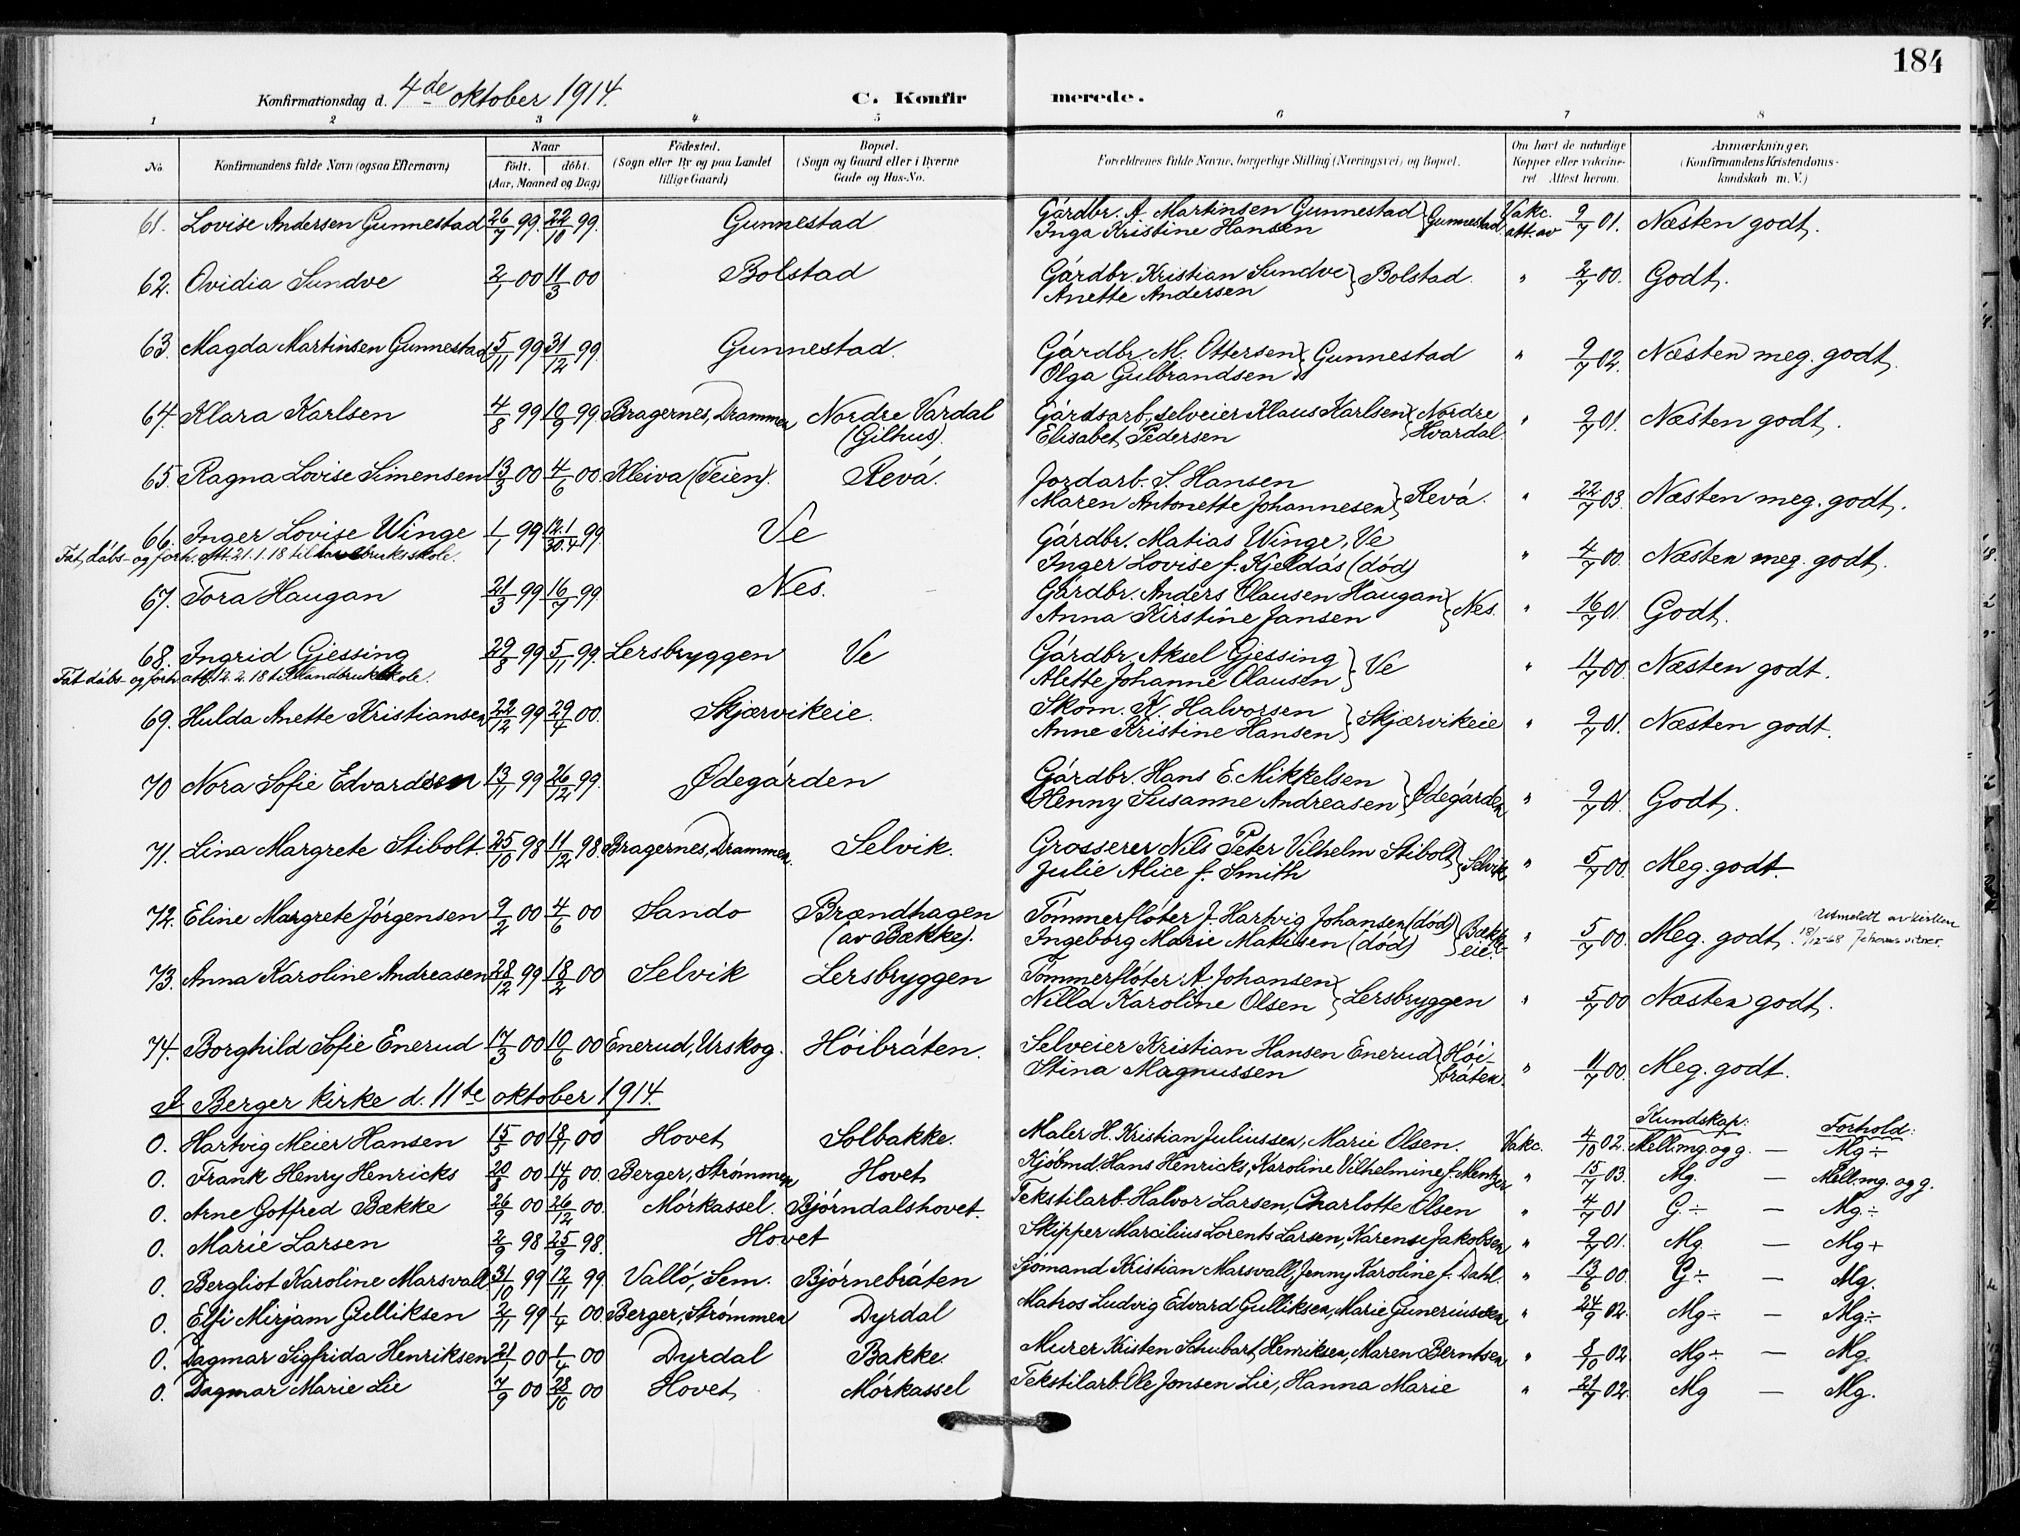 184
Konfirmationsdag d. 4de oktober 1914. C. Konfirmerede.
1 2 3 4 5 6 7 8
No. Konfirmandens fulde Navn (ogsaa Efternavn) Naar født. døbt. (Aar, Maaned og Dag) Fødested. (Sogn eller By og paa Landet tillige Gaard) Bopæl. (Sogn og Gaard eller i Byerne Gade og Hus-No. Forældrenes fulde Navne, borgerlige Stilling (Næringsvei) og Bopæl. Om havt de naturlige Kopper eller vakcineret. Attest herom. Anmærkninger. (Konfirmandens Kristendomskundskab m. V.)
61. Lovise Andersen Gunnestad 26/7 99 22/10 99. Gunnestad Gårdbr. A. Martinsen Gunnestad Inga Kristine Hansen } Gunnestad. Vakc. att. av 9/7 01. Næsten godt.
62. Ovidia Sundve 2/1 00 11/3 00 Bolstad Gårdbr. Kristian Sundve Anette Andersen } Bolstad. " 2/7 00. Godt.
63. Magda Martinsen Gunnestad 5/11 99 31/12 99. Gunnestad. Gårdbr. M. Ottersen Olga Gulbrandsen } Gunnestad " 9/7 02. Næsten meg. godt.
64. Klara Karlsen 4/8 99 10/9 99. Bragernes, Drammen Nordre Vardal (Gilhus). Gårdsarb., selveier Klaus Karlsen Elisabet Pedersen } Nordre Hvardal. " 9/7 01. Næsten godt.
65. Ragna Lovise Simensen 13/3 00 4/6 00 Kleiva (Teien). Revå. Jordarb. S. Hansen Maren Antonette Johannesen } Revå. " 22/7 03. Næsten meg. godt.
66. Inger Lovise Winge 1/1 99 12.1/30.4 99. Ve Gårdbr. Matias Winge, Ve Inger Lovise f. Kjeldås (död) " 4/7 00. Næsten meg. godt.
Fåt dåbs- og forh. att. 21.1.18 til
67. Tora Haugan 21/3 99 16/7 99. Nes. Gårdbr. Anders Olausen Haugan Anna Kirstine Jansen } Nes. " 16/7 01. Godt.
68. Ingrid Gjessing 29/8 99 5/11 99. Lersbryggen Ve Gårdbr. Aksel Gjessing Alette Johanne Olausen } Ve " 11/7 00. Næsten godt.
Fåt dåbs- og forh. att. 12.2.18 til landbrukskole.
69. Hulda Anette Kristiansen 22/12 99 29/4 00. Skjærvikeie. Skom. K. Halvorsen Anne Kristine Hansen } Skjærvikeie " 9/7 01. Næsten godt.
70 Nora Sofie Edvardsen 13/11 99 26/12 99. Ødegården Gårdbr. Hans E. Mikkelsen Henny Susanne Andreasen } Ødegården " 9/7 01. Godt.
71. Lina Margrete Stibolt 25/10 98 11/12 98. Bragernes, Drammen. Selvik. Grosserer Nils Peter Vilhelm Stibolt Julie Alice f. Smith } Selvik " 5/7 00. Meg. godt.
72. Eline Margrete Jörgensen 9/2 00 4/6 00 Sando Brændhagen (av Bække). Tömmerflöter J. Hartvig Johansen (död) Ingeborg Marie Matisen (död) } Bække eie. " 5/7 00. Meg. godt. Utmeldt av kirken 18/12-68 Jehovas vitner.
73. Anna Karoline Andreasen 28/12 99 18/2 00 Selvik Lersbryggen Tömmerflöter A. Johansen Nilla Karoline Olsen } Lersbryggen " 5/7 00 Næsten godt.
74. Borghild Sofie Enerud 17/3 00 10/6 00 Enerud, Urskog. Höibråten. Selveier Kristian Hansen Enerud Stina Magnussen } Höibråten. " 11/7 00. Meg. godt.
I Berger kirke d. 11te oktober 1914.
Kundskap: Forhold:
0. Hartvig Meier Hansen 15/5 00 18/11 00 Hovet Solbakke. Maler H. Kristian Juliussen, Marie Olsen. Vakc. 4/10 02. Mell. mg. og g. — Mg÷
0. Frank Henry Henricks 20/8 00 14/10 00. Berger, Strømmen Hovet Kjöbmd Hans Henricks, Karoline Vilhelmine f. Mentzer " 15/7 03. Mg. — Mell. mg. og g.
0. Arne Goffred Bække 26/9 00 26/12 00. Mörkassel. Björndalshovet. Tekstilarb. Halvor Larsen, Charlotte Olsen " 4/7 01 G÷ — Mg÷
0. Marie Larsen 2/9 98 25/9 98. Hovet Skipper Marcilius Lorents Larsen, Narense Jakobsen " 9/7 01. Mg. — Mg+
0. Bergliot Karoline Marsvall 31/10 99 12/11 99 Vallö, Sem. Björnebråten Sjömand Kristian Marsvall, Jenny Karoline f. Dahl. " 13/6 00. G÷ — Mg.
0. Elfi Mirjam Gulliksen 2/11 99 1/4 00. Berger, Strømmen Dyrdal Matros Ludvig Edvard Gulliksen, Marie Guneriussen " 24/9 02. Mg÷ — Mg÷
0. Dagmar Sigfrida Henriksen 21/1 00 1/4 00 Dyrdal Bakke Murer Kristen Schubart Henriksen, Maren Berntsen " 8/10 02. Mg÷ — Mg.
0. Dagmar Marie Lie 7/9 00 28/10 00 Hovet Mörkassel Tekstilarb. Ole Jonsen Lie, Hanna Marie " 21/7 02. Mg — Mg.